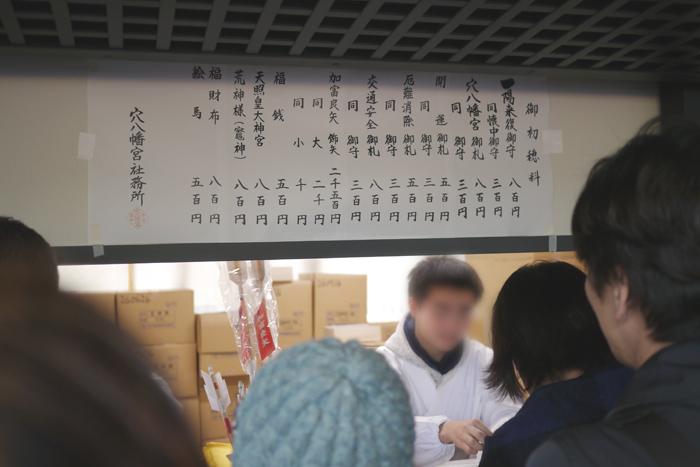 御初穂料
一陽来復御守 八百円
同懐中御守 三百円
穴八幡宮 御札 八百円
同 御守 三百円
開運 御札 五百円
同 御守 三百円
厄難消除 御札 五百円
同 御守 三百円
交通安全 御札 八百円
同 御守 三百円
加富良矢 飾矢 二千五百円
同 大 二千円
同 小 千円
福銭 五百円
天照皇大神宮 八百円
荒神様(竈神) 八百円
福財布 八百円
絵馬 五百円
穴八幡宮社務所